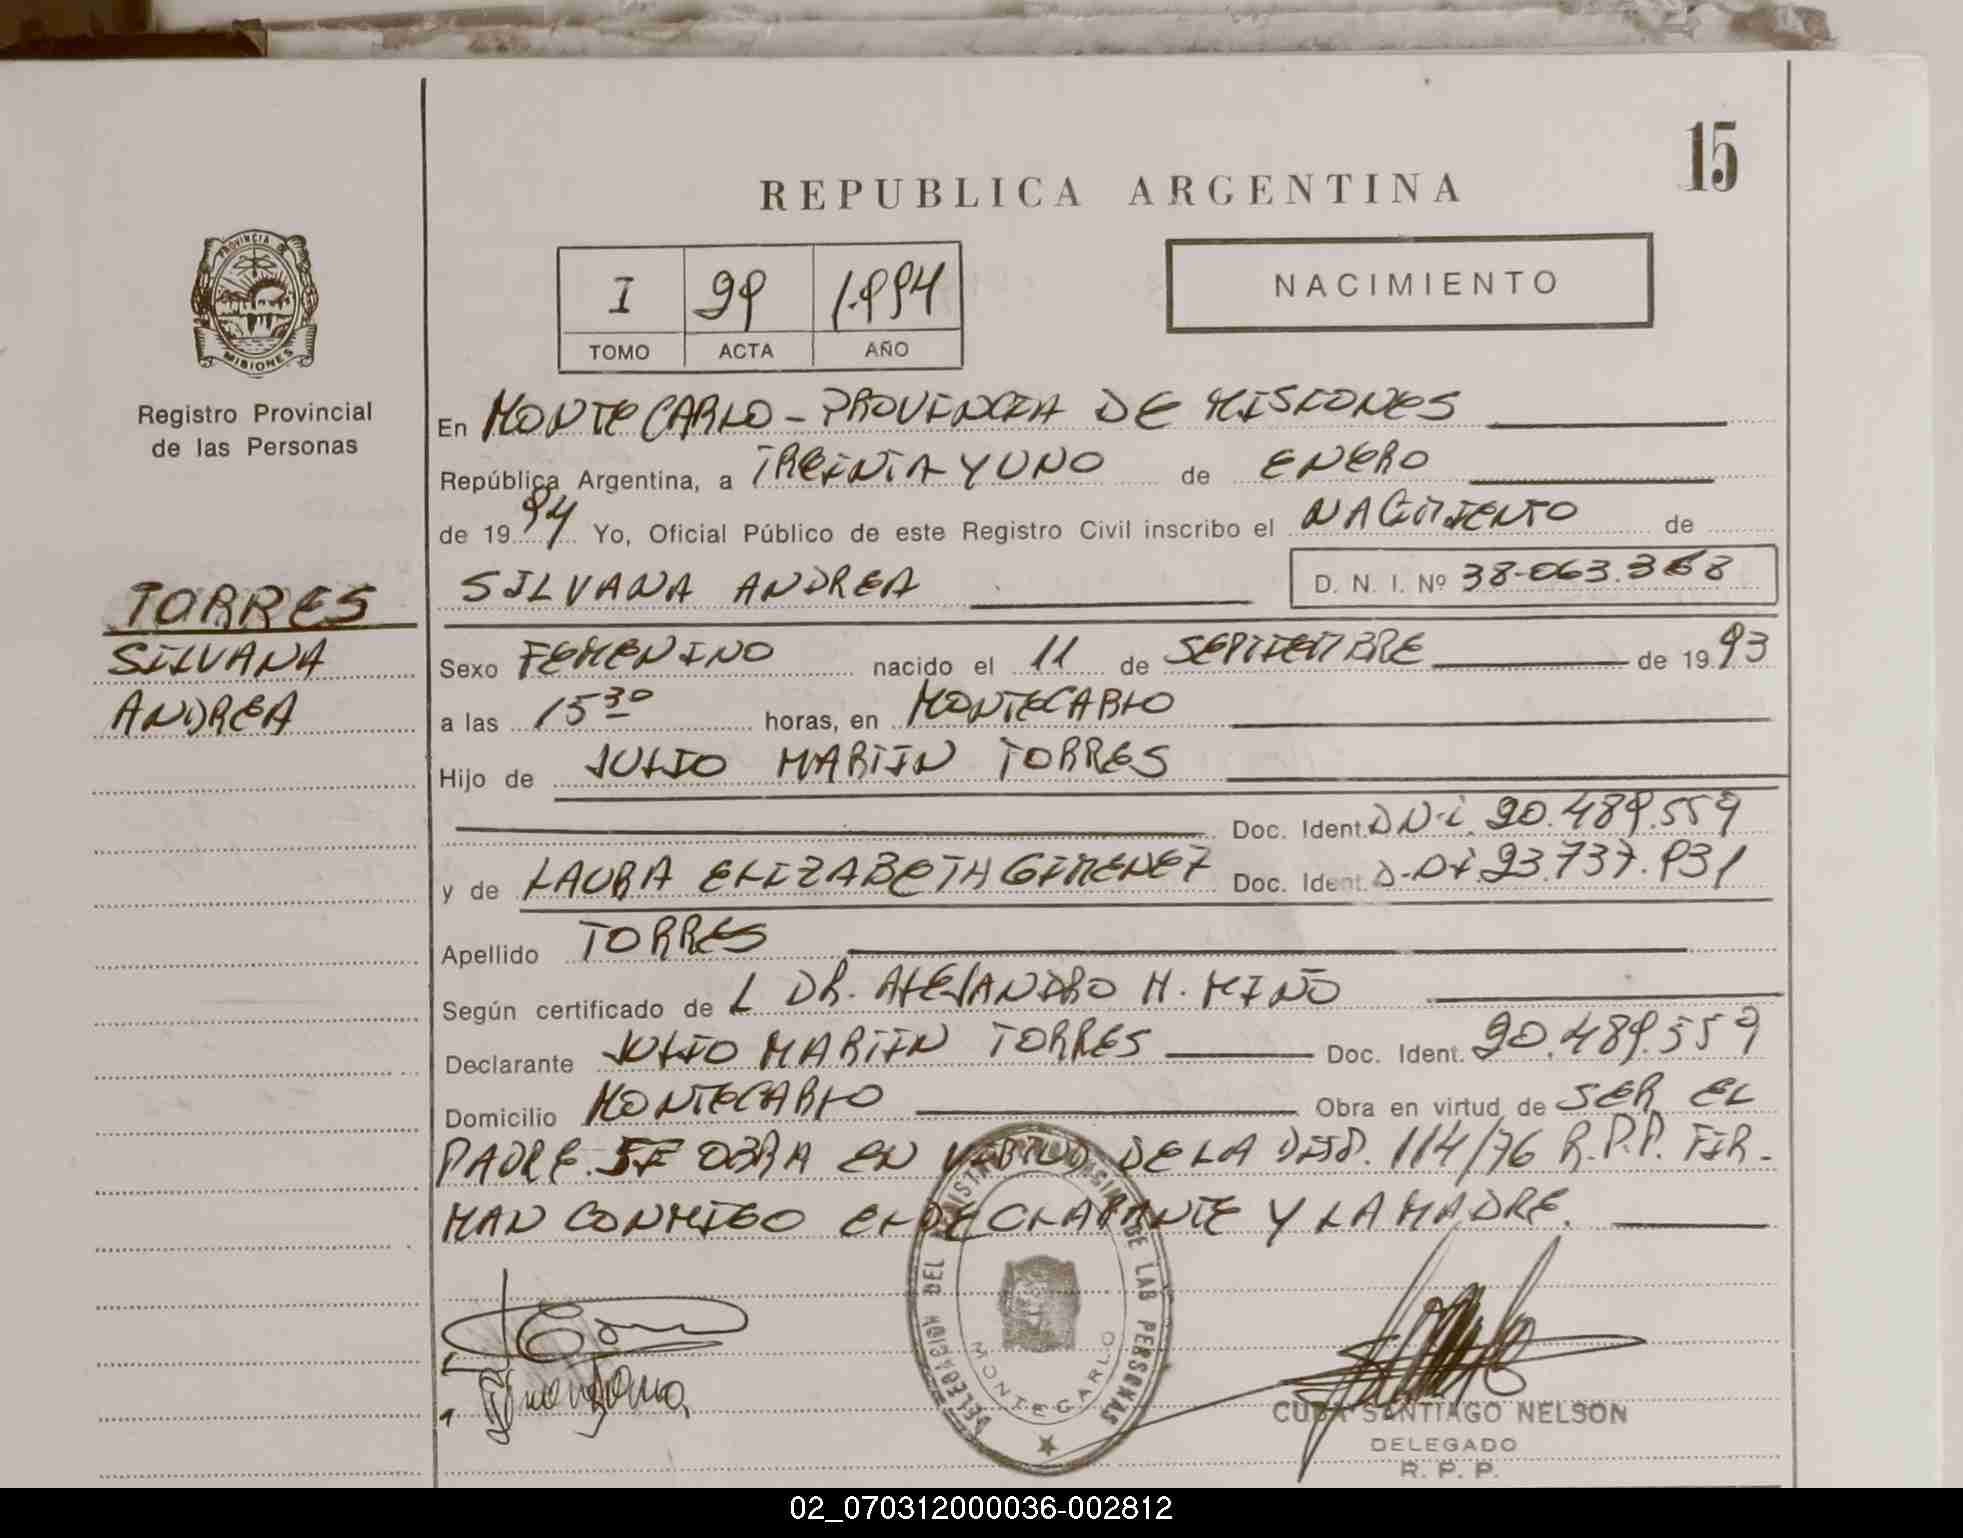 15
REPUBLICA ARGENTINA
PROVINCIA DE MISIONES
I 29 1.994
TOMO ACTA AÑO
NACIMIENTO
Registro Provincial
de las Personas
TORRES
SILVANA
ANDREA
En MONTECARLO - PROVINCIA DE MISIONES
República Argentina, a TREINTA Y UNO de ENERO
de 19 94 Yo, Oficial Público de este Registro Civil inscribo el NACIMIENTO de
SILVANA ANDREA D. N. I. Nº 38.063.368
Sexo FEMENINO nacido el 11 de SEPTIEMBRE de 19 93
a las 15 30 horas, en MONTECARLO
Hijo de JULIO MARTIN TORRES
Doc. Ident. D N.i. 20.489.559
y de LAURA ELIZABETH GIMENEZ Doc. Ident. 23.737.931
Apellido TORRES
Según certificado de L DR. ALEJANDRO H. MIÑO
Declarante JULIO MARTIN TORRES Doc. Ident. 20.489.559
Domicilio MONTECARLO Obra en virtud de SER EL
PADRE. SE OBRA EN VIRTUD DE LA DISP. 114/76 R.P.P. FIR-
MAN CONMIGO EL DECLARANTE Y LA MADRE.
DELEGACION DEL REGISTRO DE LAS PERSONAS
MONTECARLO
CUBA SANTIAGO NELSON
DELEGADO
R. P. P.
02_070312000036-002812